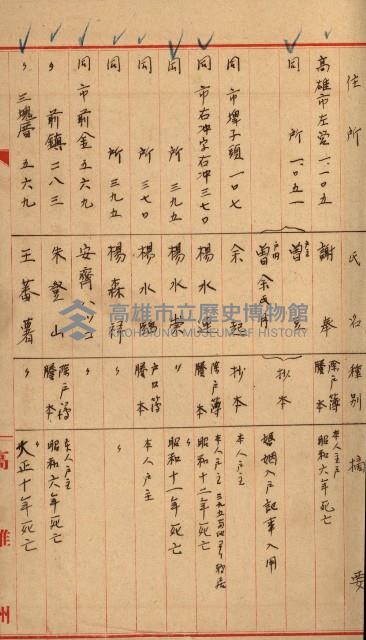 住所 氏名 種別 摘要
高雄市左營一、一〇五 謝奉 除戶簿謄本 本人戶主 昭和六年死亡
同 所 一、〇五一
曾余氏月 抄本 婚姻入戶記事入用
同市埤子頭一〇七 余起 抄本 本人戶主
同市右冲字右冲三七〇 楊水連 除戶簿謄本 昭和十二年死亡
同 所 三九五 楊水 〃 昭和十一年死亡
同 所 三七〇 楊水 戶口簿謄本 本人戶主
同 所 三九五 楊森 〃 〃
同市前金五六九 安齊
〃 前鎮二八三 朱登山 除戶簿謄本 本人戶主 昭和六年死亡
〃 三塊厝 五六九 王蕃薯 〃 〃 大正十年死亡
高雄州
高雄市立歷史博物館
KAOHSIUNG MUSEUM OF HISTORY